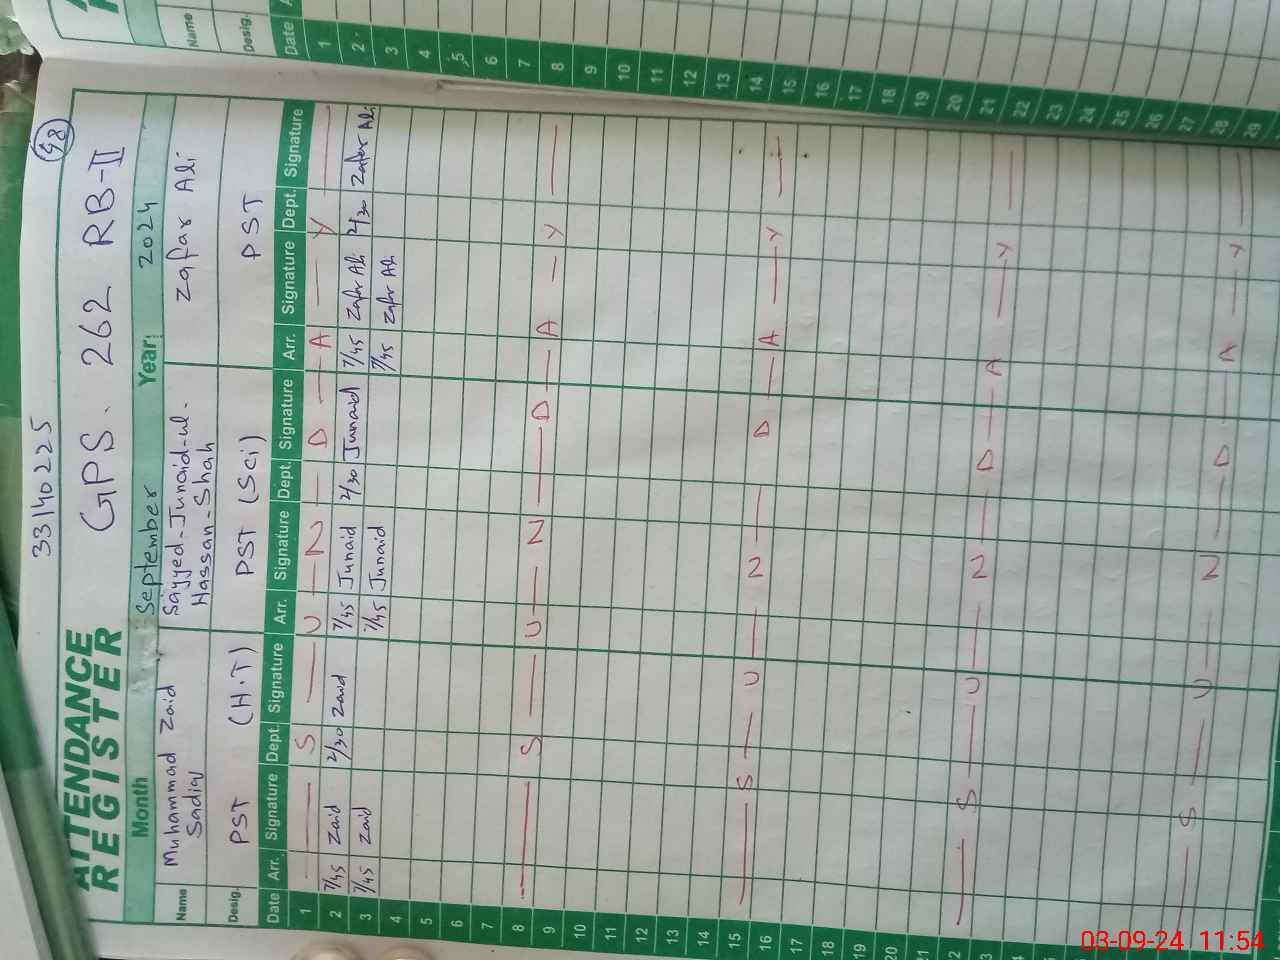 98
33140225
ATTENDANCE
REGISTER
GPS. 262 RB-II
Month September Year: 2024
Name Muhammad Zaid Sadiq Sayyed-Junaid-ul-Hassan-Shah Zafar Ali
Desig. PST (H.T) PST (Sci) PST
Date Arr. Signature Dept. Signature Arr. Signature Dept. Signature Arr. Signature Dept. Signature
1 S U N D A Y
2 7/45 Zaid 2/30 Zaid 7/45 Junaid 2/30 Junaid 7/45 Zafar Ali 2/30 Zafar Ali
3 7/45 Zaid 7/45 Junaid 7/45 Zafar Ali
4
5
6
7
8 S U N D A Y
9
10
11
12
13
14
15 S U N D A Y
16
17
18
19
20
21
22 S U N D A Y
23
24
25
26
27
28
S U N D A Y
Name
Desig.
Date
1
2
3
4
5
6
7
8
9
10
11
12
13
14
15
16
17
18
19
20
21
22
23
24
25
26
27
28
29
03-09-24 11:54